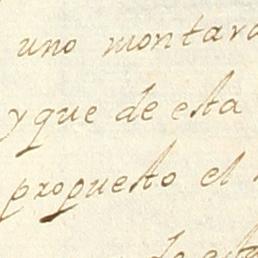 uno montara
y que de esta
propuesto el